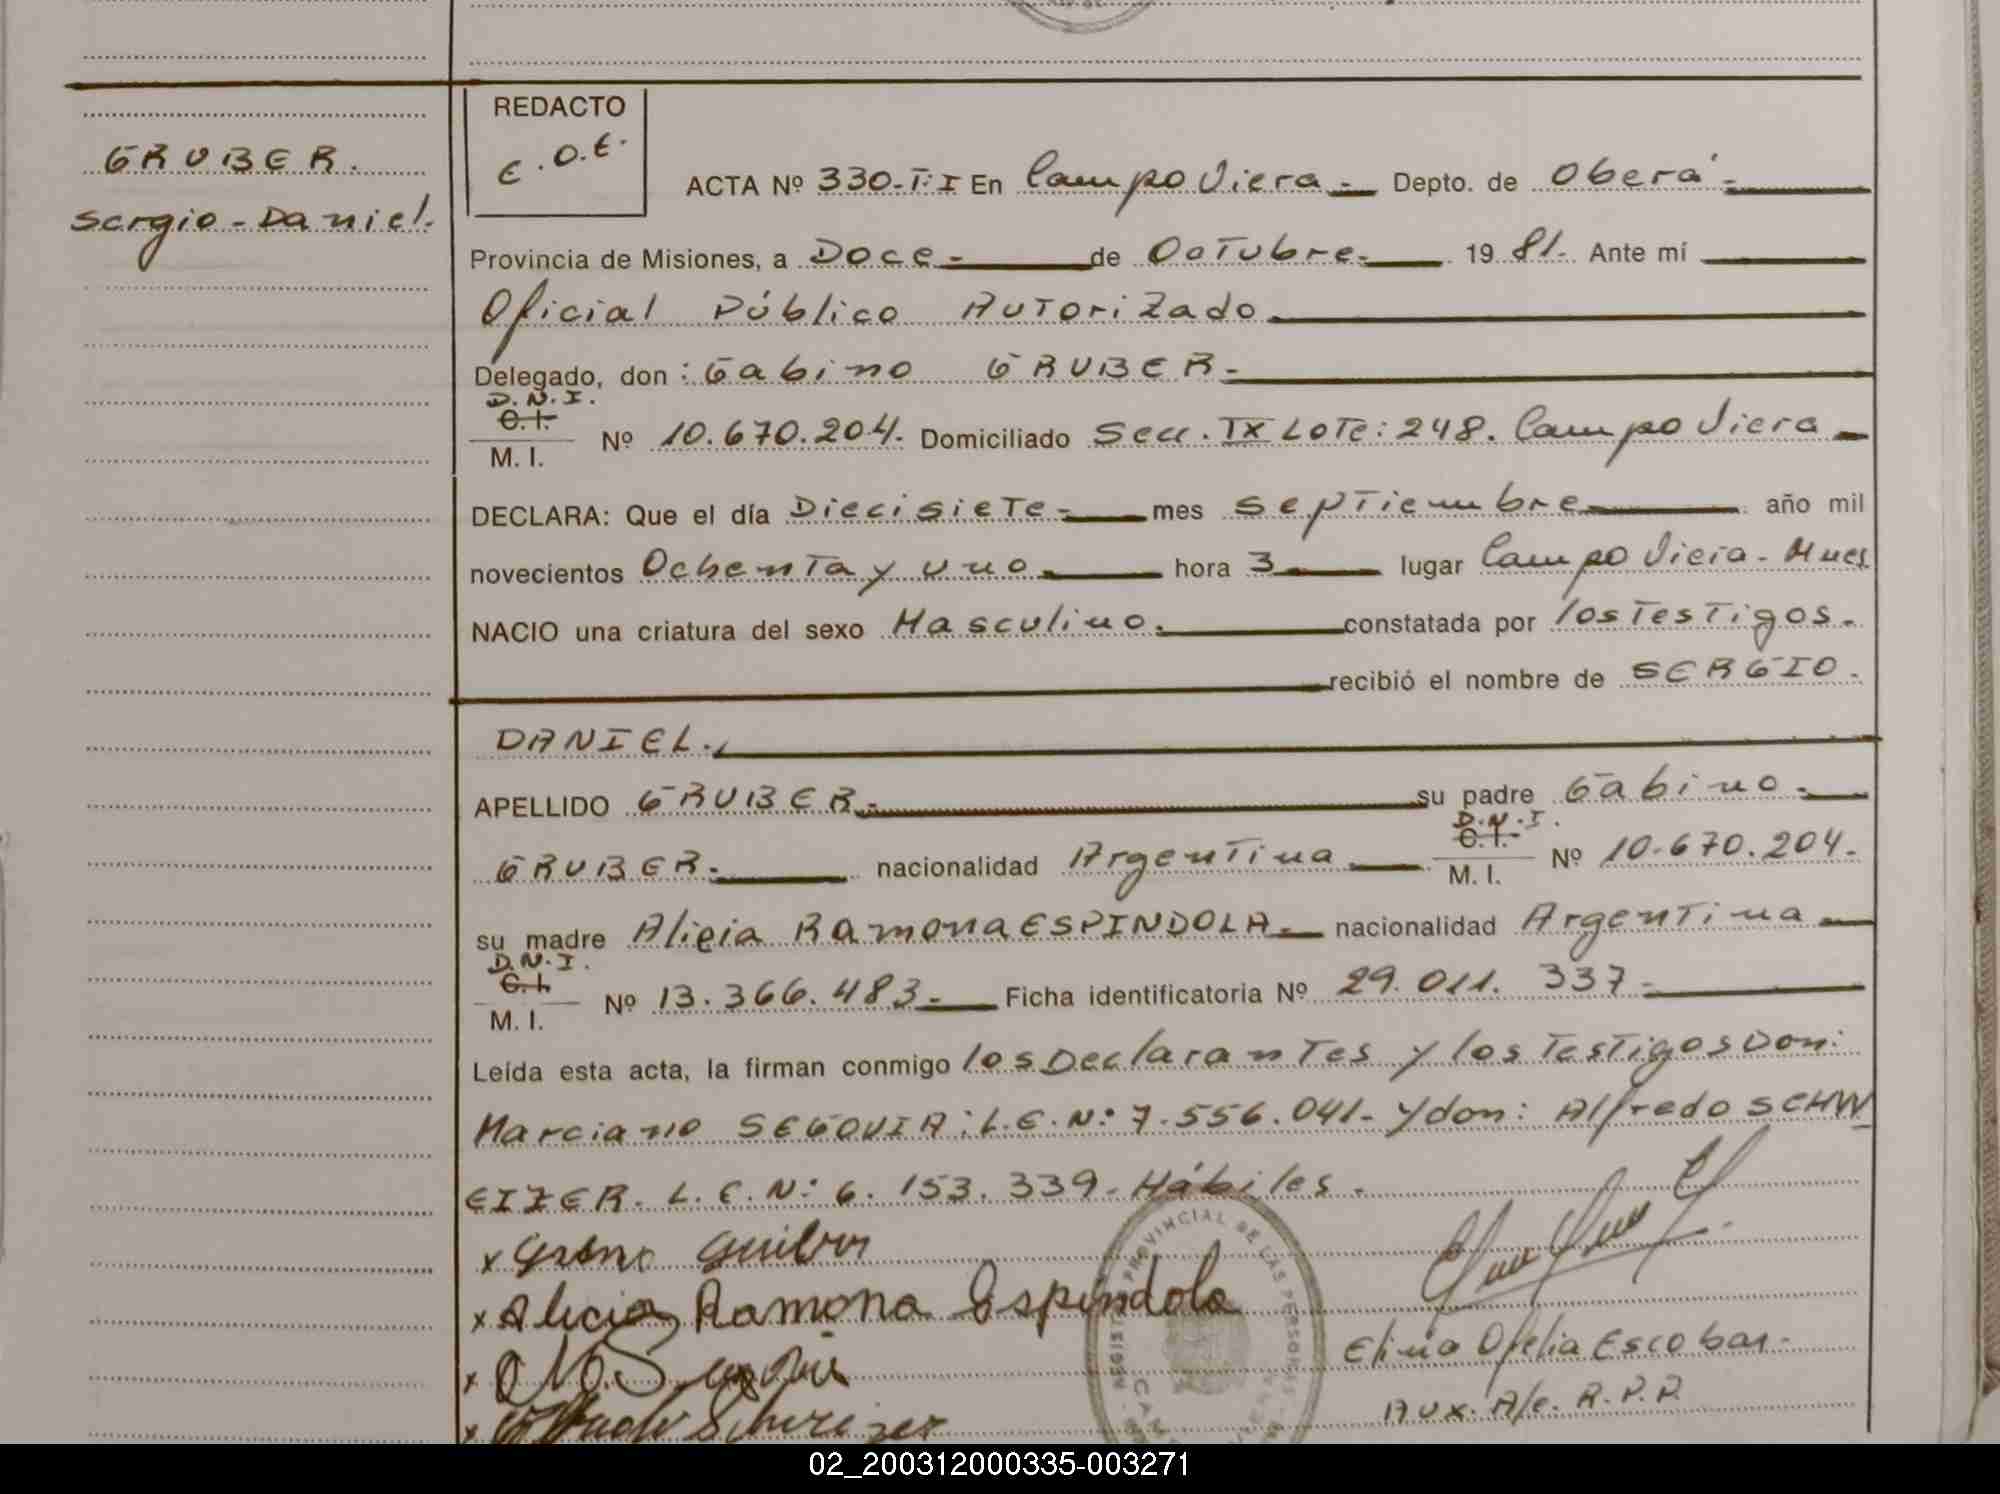 GRUBER.
Sergio-Daniel.
REDACTO
E.O.E.
ACTA Nº 330-T:I En Campo Viera - Depto. de Oberá -
Provincia de Misiones, a Doce - de Octubre - 19 81. Ante mí
Oficial Público Autorizado
Delegado, don : Gabino GRUBER -
D.N.I.
C.I.
M. I. Nº 10.670.204. Domiciliado Secc. IX Lote: 248. Campo Viera -
DECLARA: Que el día Diecisiete - mes Septiembre año mil
novecientos Ochenta y uno hora 3 lugar Campo Viera - Mnes
NACIO una criatura del sexo Masculino. constatada por los Testigos.
recibió el nombre de SERGIO.
DANIEL.
APELLIDO GRUBER - su padre Gabino -
D.N.I.
C.I.
GRUBER. nacionalidad Argentina M. I. Nº 10.670.204.
su madre Alicia Ramona ESPINDOLA - nacionalidad Argentina
D.N.I.
C.I.
M. I. Nº 13.366.483 - Ficha identificatoria Nº 29.011.337 -
Leída esta acta, la firman conmigo los Declarantes y los Testigos Don:
Marciano SEGOVIA: L.E.N: 7.556.041 - y don: Alfredo SCHW
EIZER. L.E.N: 6.153.339 - Hábiles.
x
x Alicia Ramona Espindola
x
x Schweizer
REGISTRO PROVINCIAL DE LAS PERSONAS
Elina Ofelia Escobar -
Aux. A/c. R.P.P.
02_200312000335-003271